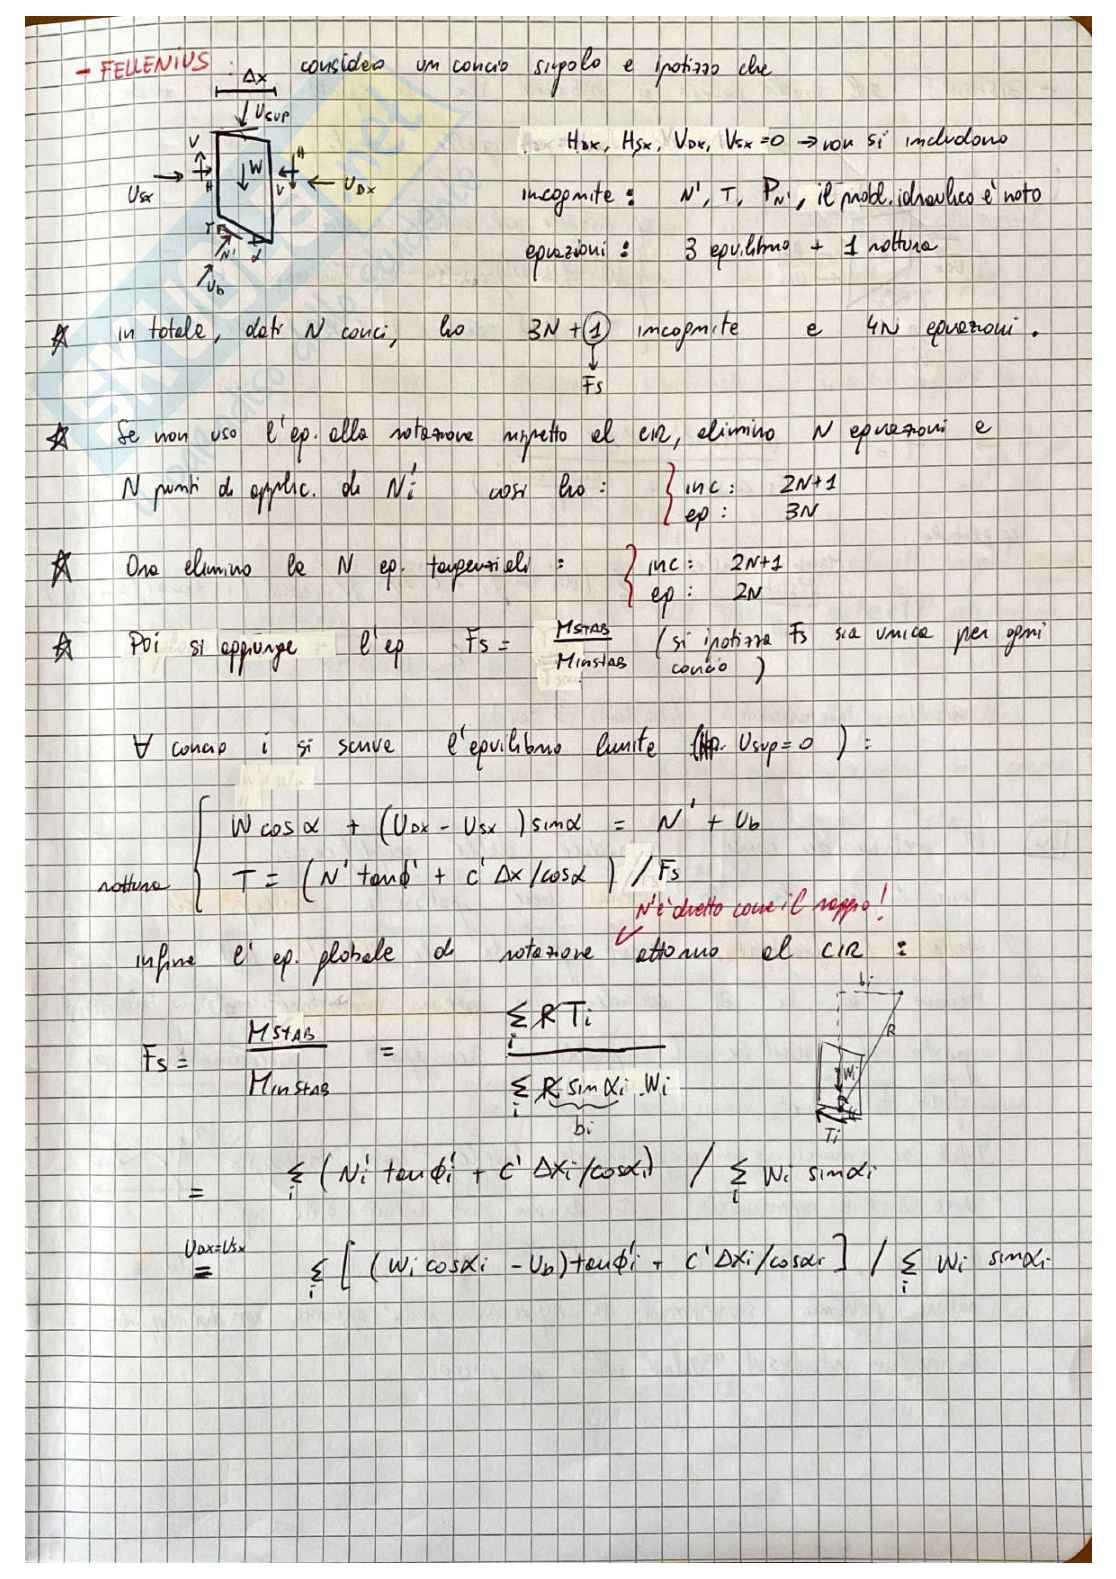 - FELLENIUS : considero un concio singolo e ipotizzo che
Δx
Usup
HDX, HSX, VDX, VSX = 0 → non si includono
V
H
W
H
V
USX
UDX
incognite : N', T, PN', il probl. idraulico è noto
T
N'
α
Ub
equazioni : 3 equilibrio + 1 rottura
☆ in totale, dati N conci, ho 3N + 1 incognite e 4N equazioni.
Fs
☆ Se non uso l'eq. alla rotazione rispetto al CIR, elimino N equazioni e
N punti di applic. di Ni' così ho : { inc : 2N+1
eq : 3N
☆ Ora elimino le N eq. tangenziali : { inc : 2N+1
eq : 2N
☆ Poi si aggiunge l'eq Fs = MSTAB / MINSTAB ( si ipotizza Fs sia unica per ogni
concio )
∀ concio i si scrive l'equilibrio limite (Hp. Usup = 0 ) :
W cos α + (UDX - USX) sinα = N' + Ub
rottura T = (N' tanϕ' + c' Δx/cosα ) / Fs
N' è diretto come il raggio!
infine l'eq. globale di rotazione attorno al CIR :
bi
R
Wi
Ti
Fs = MSTAB / MINSTAB = Σi R Ti / Σi R sin αi Wi
bi
= Σi (Ni' tan ϕi' + c' Δxi/cosαi) / Σi Wi sinαi
UDX=USX
= Σi [ (Wi cosαi - Ub) tanϕi' + c' Δxi/cosαi ] / Σi Wi sinαi